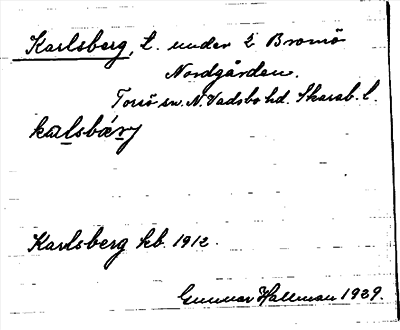 Karlsberg, l. under 2 Bromö
Nordgården.
Torsö sn. N. Vadsbo hd. Skarab. l.
kalsbärj
Karlsberg kb. 1912.
Gunnar Hallman 1939.